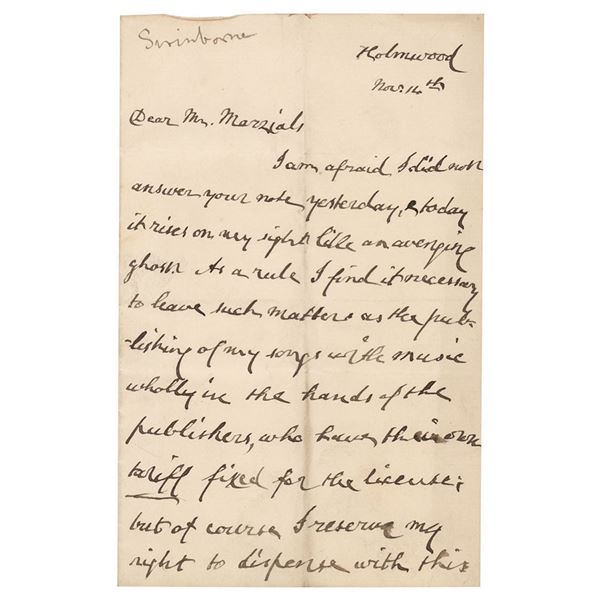 Swinborne
Holmwood
Nov: 14th
Dear Mr. Marzials
I am afraid I did not
answer your note yesterday, & today
it rises on my sight like an avenging
ghost. As a rule I find it necessary
to leave such matters as the pub-
-lishing of my songs with music
wholly in the hands of the
publishers, who have their own
tariff fixed for the license;
but of course I reserve my
right to dispense with this